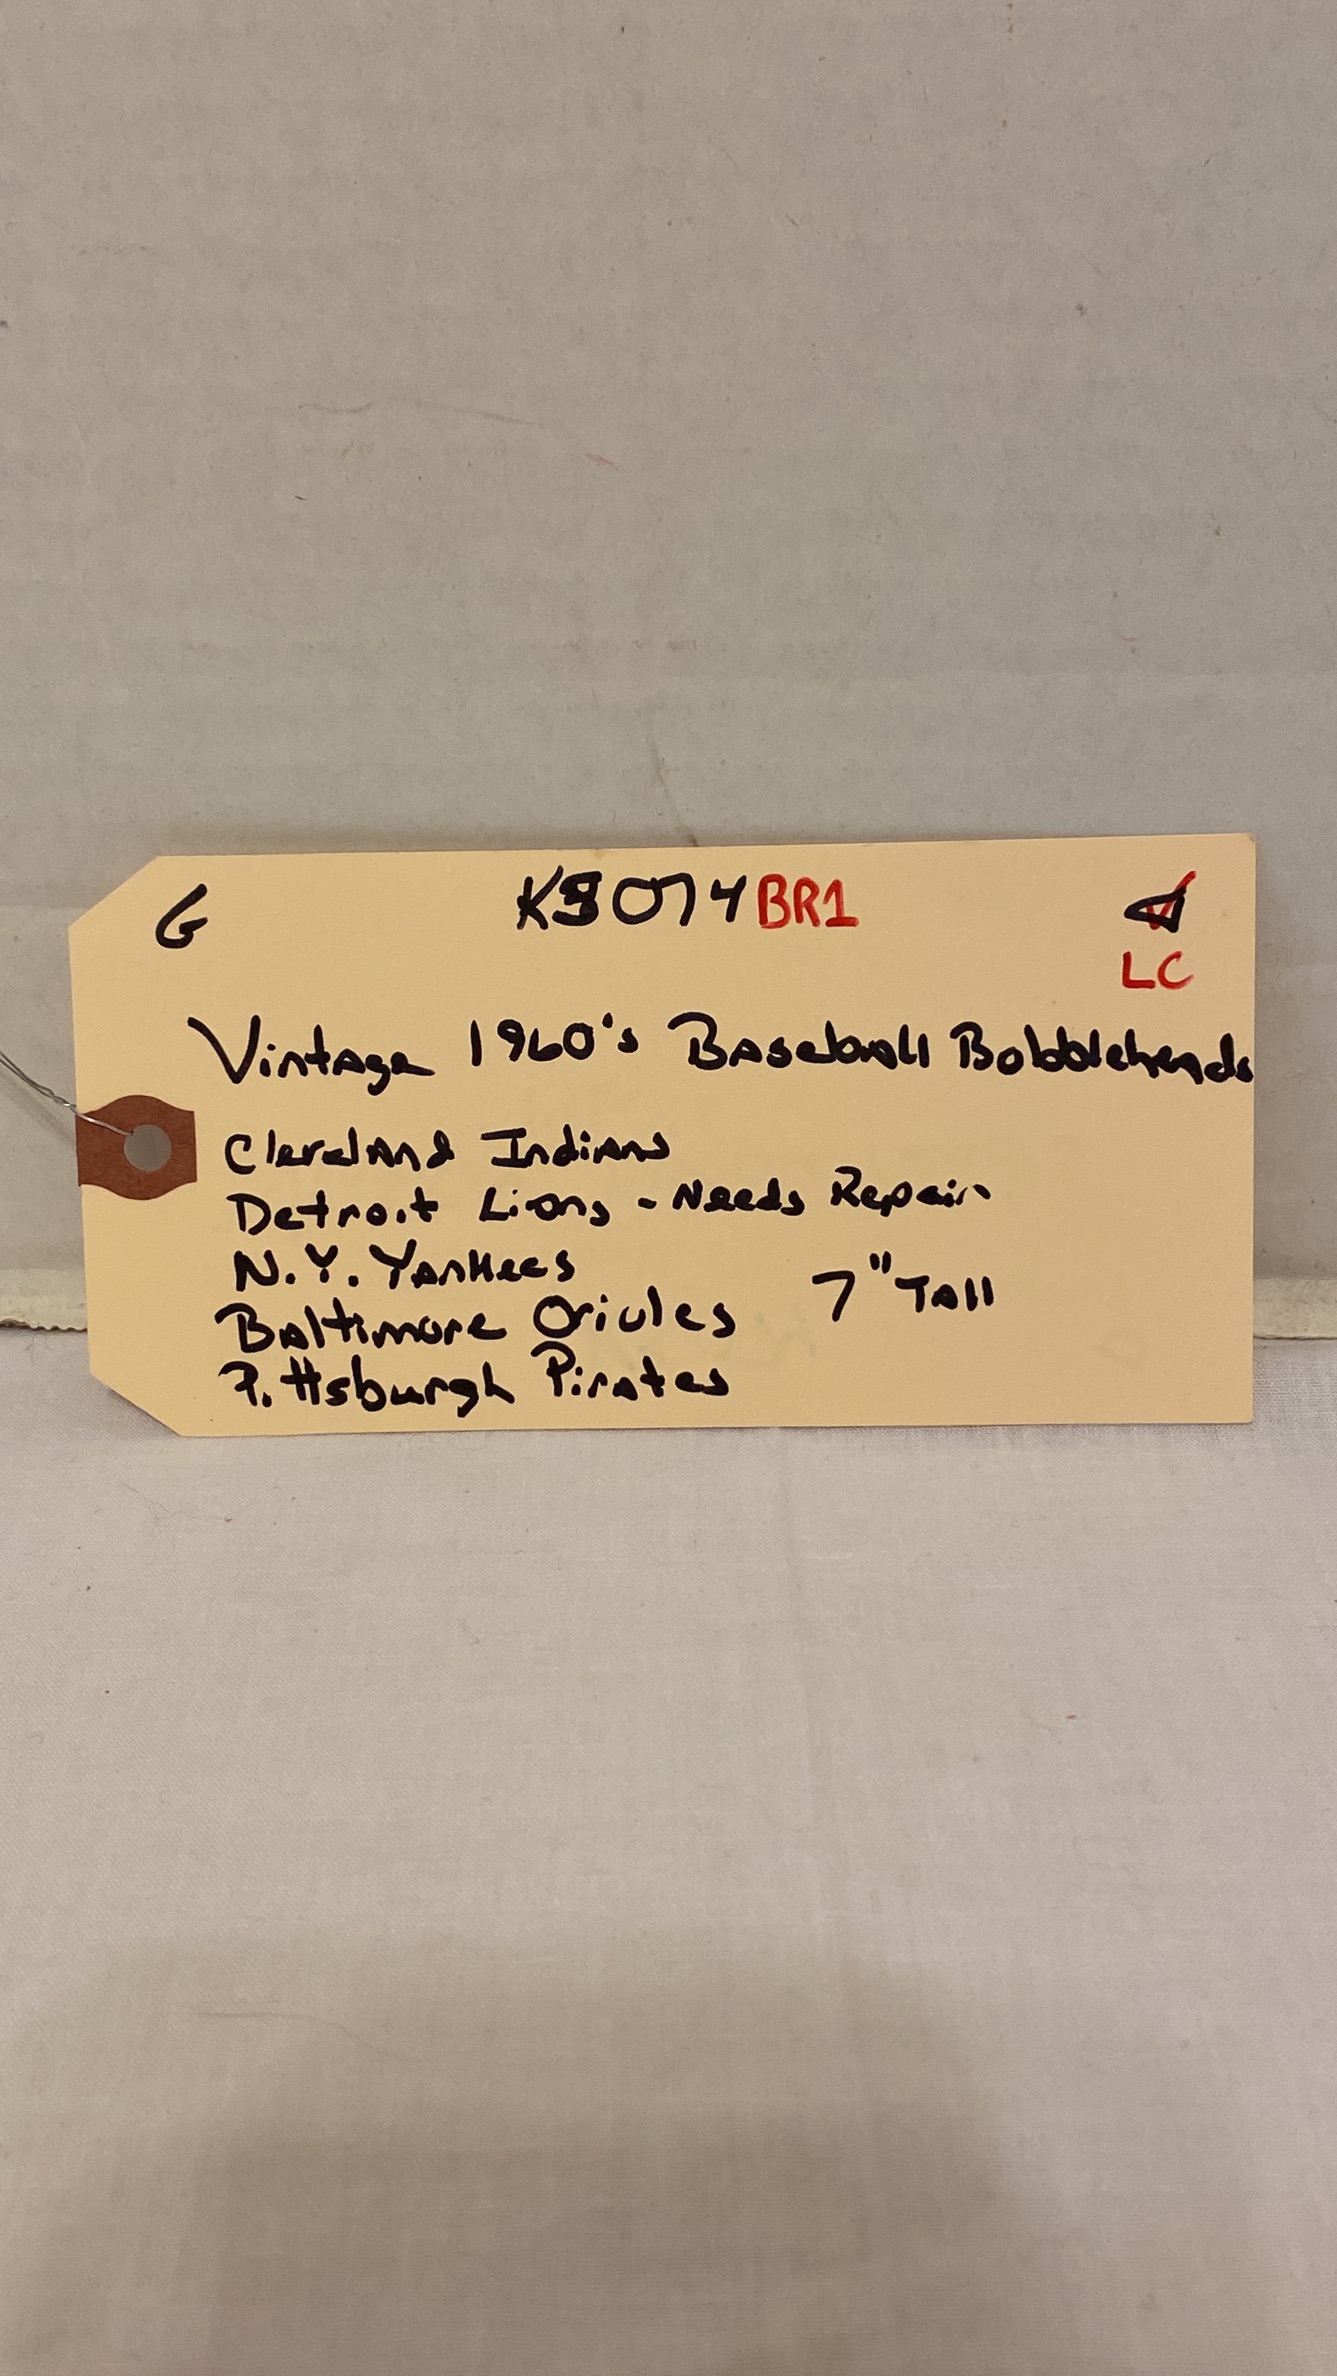 G K3074BR1
LC
Vintage 1960's Baseball Bobbleheads
Cleveland Indians
Detroit Lions - Needs Repair
N.Y. Yankees
7" Tall
Baltimore Orioles
Pittsburgh Pirates